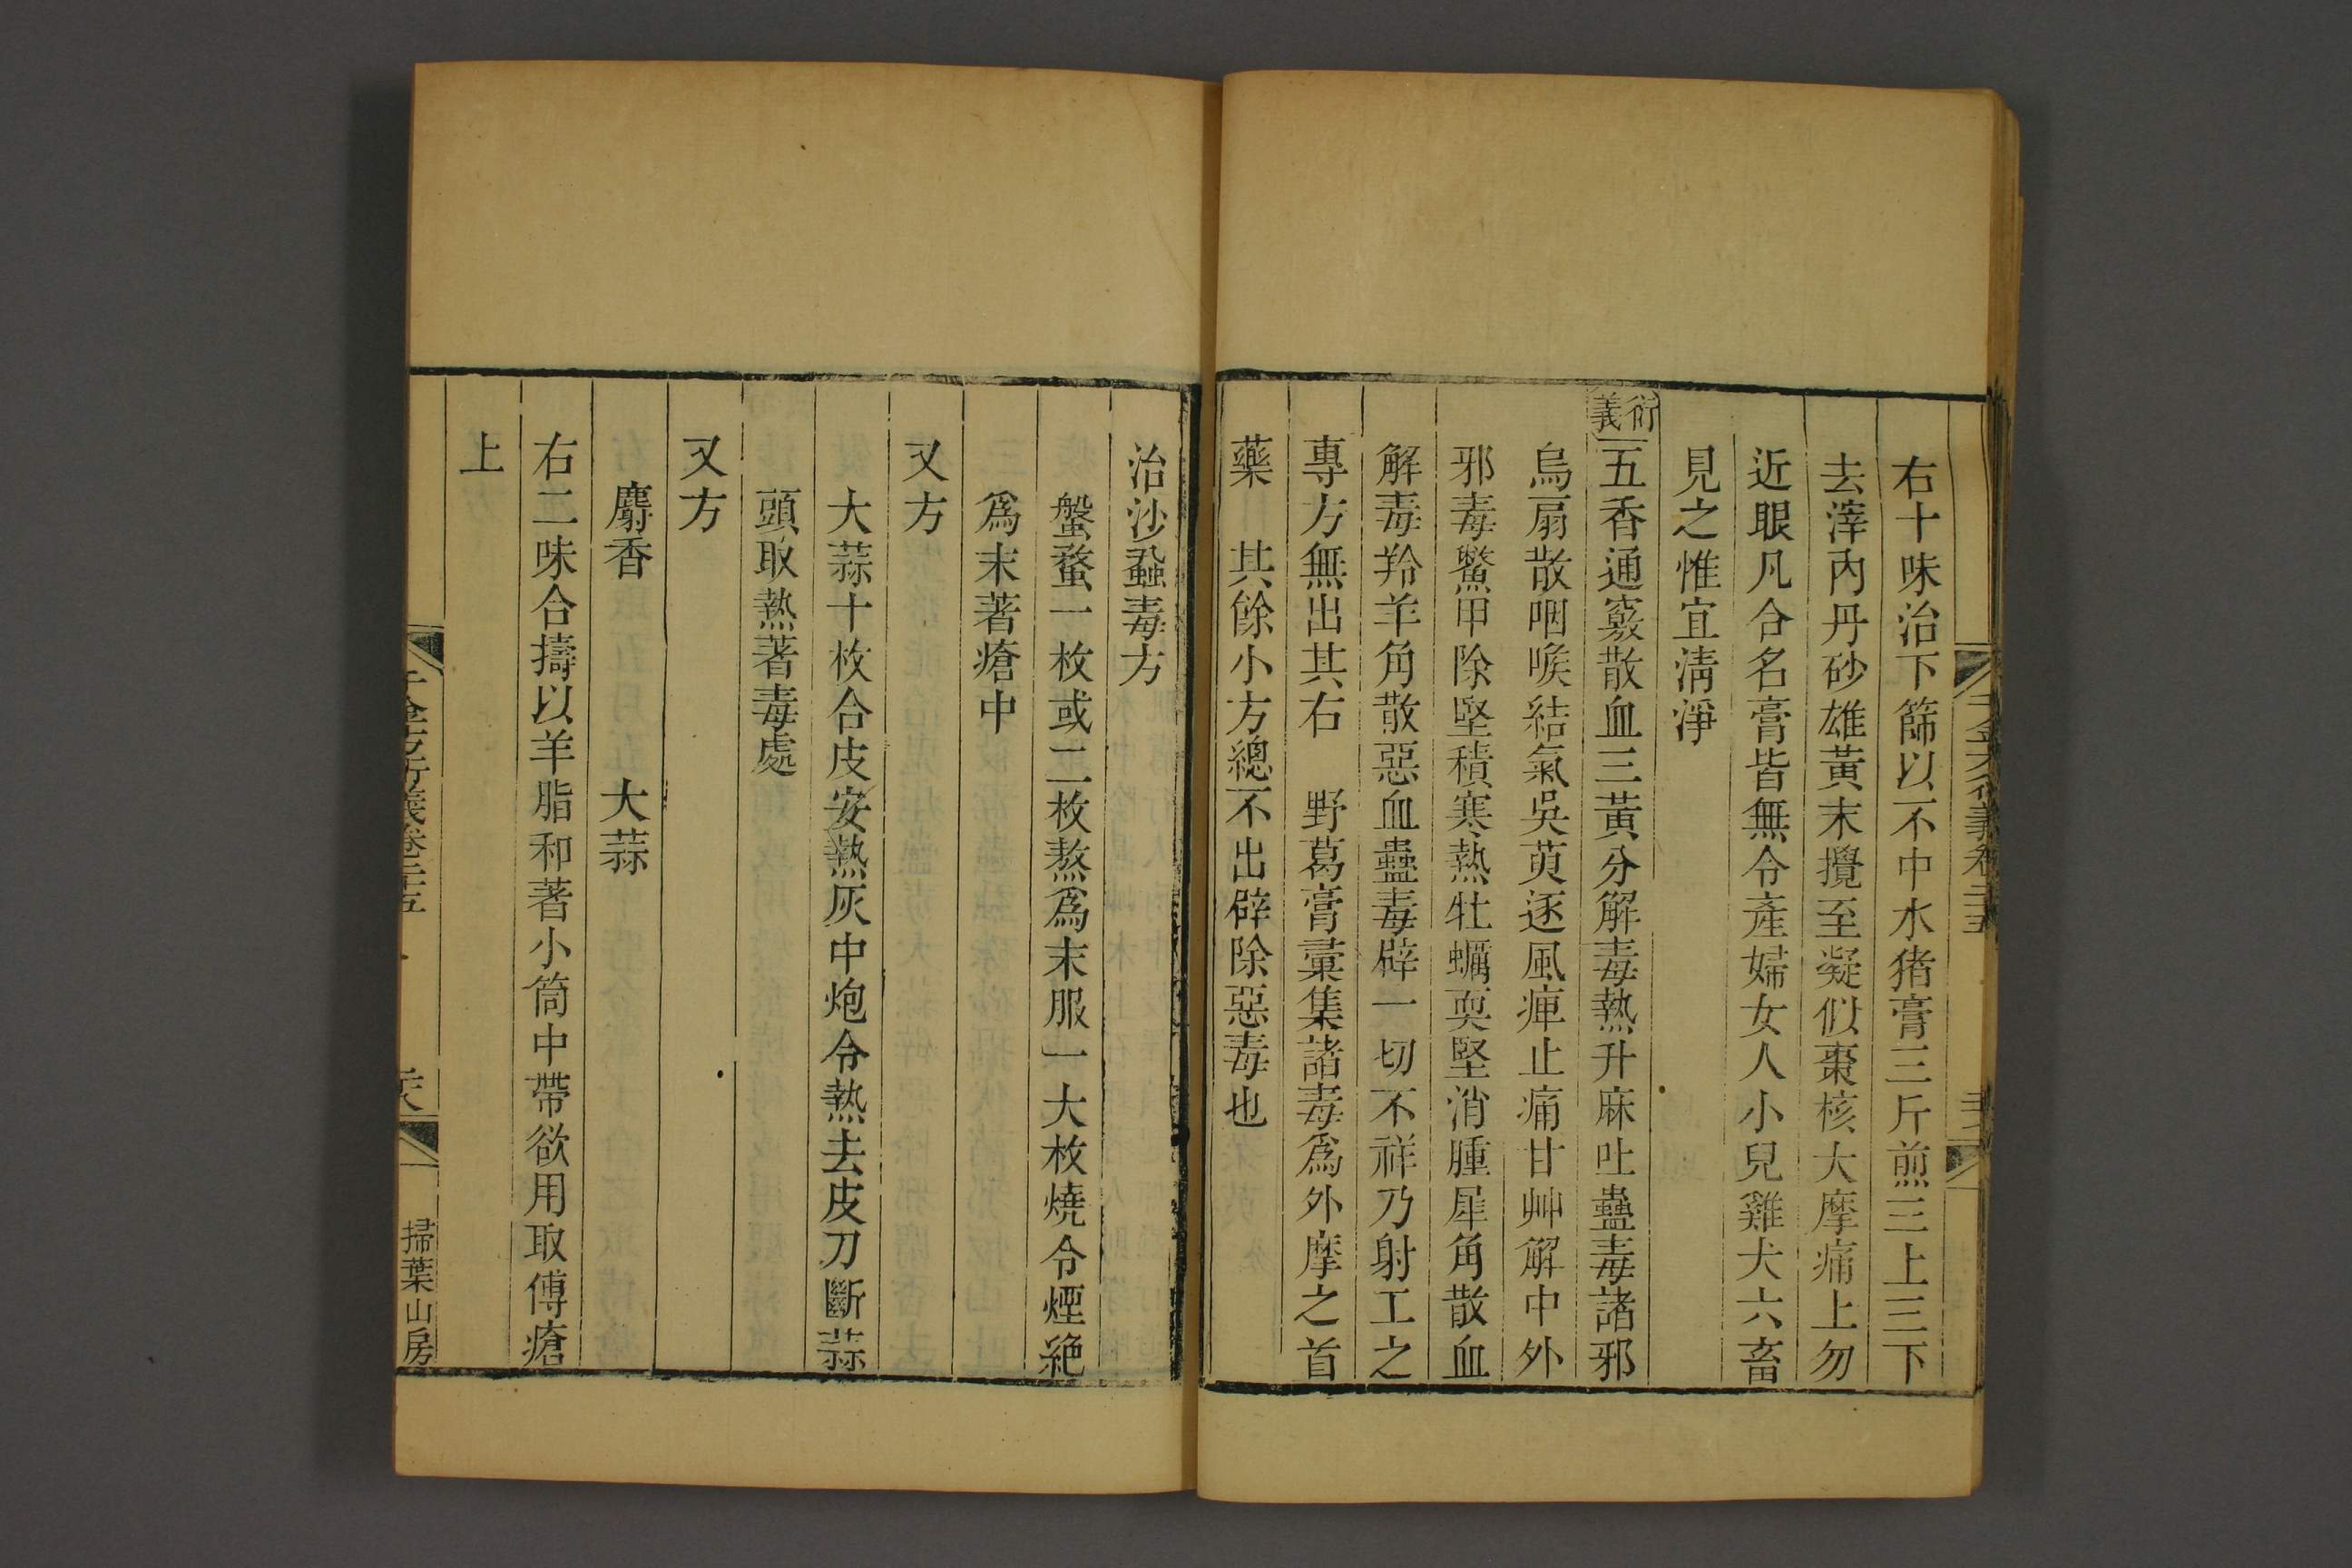 右十味治下篩以不中水猪膏三斤煎三上三下
去滓内丹砂雄黃末攪至凝似棗核大摩痛上勿
近眼凡合名膏皆無令產婦女人小兒雞犬六畜
見之惟宜清淨
衍義 五香通竅散血三黃分解毒熱升麻吐蠱毒諸邪
烏扇散咽喉結氣吳萸逐風痺止痛甘艸解中外
邪毒鱉甲除堅積寒熱牡蠣耎堅消腫犀角散血
解毒羚羊角散惡血蠱毒辟一切不祥乃射工之
專方無出其右　野葛膏彙集諸毒爲外摩之首
藥　其餘小方總不出辟除惡毒也
治沙蝨毒方
螌蝥一枚或二枚熬爲末服一大枚燒令煙絕
爲末著瘡中
又方
大蒜十枚合皮安熱灰中炮令熱去皮刀斷蒜
頭取熱著毒處
又方
麝香　大蒜
右二味合擣以羊脂和著小筒中帶欲用取傅瘡
上
千金方衍義卷二十五
掃葉山房